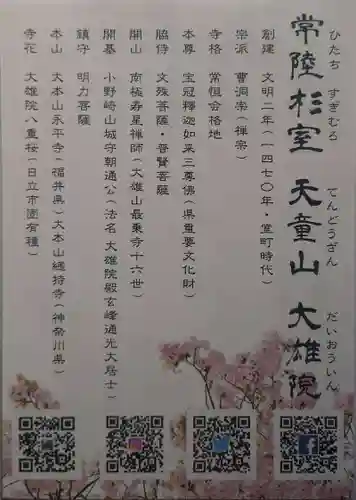 常陸杉室 天童山 大雄院
ひたち すぎむろ てんどうざん だいおういん
創建 文明二年（一四七〇年・室町時代）
宗派 曹洞宗（禅宗）
寺格 常恒会格地
本尊 宝冠釋迦如来三尊佛（県重要文化財）
脇侍 文殊菩薩・普賢菩薩
開山 南極寿星禅師（大雄山最乗寺十六世）
開基 小野崎山城守朝通公（法名 大雄院殿玄峰通光大居士）
鎮守 明力菩薩
本山 大本山永平寺（福井県）大本山總持寺（神奈川県）
寺花 大雄院八重桜（日立市固有種）